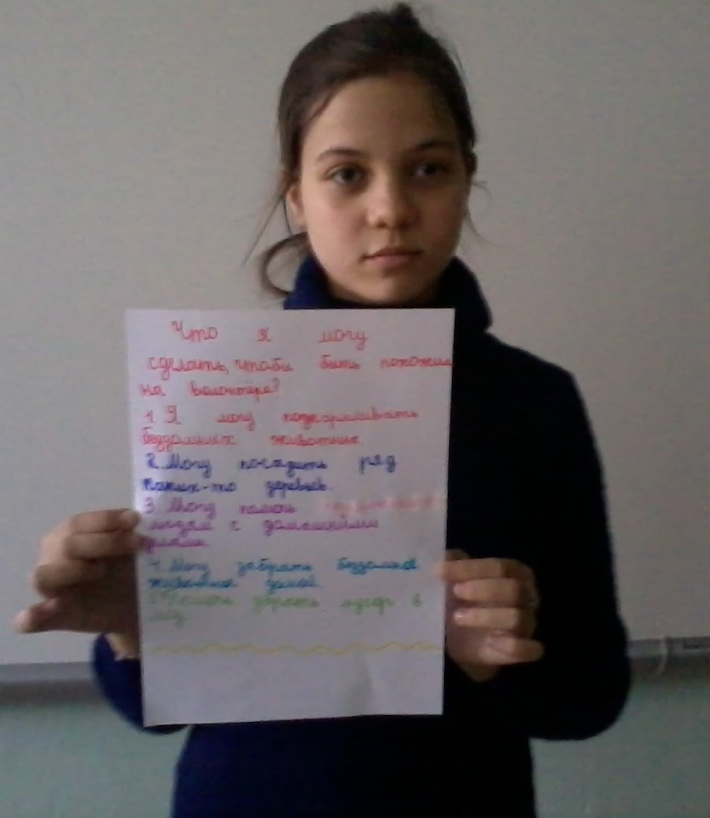 Что я могу
сделать, чтобы быть похожим
на волонтёра?
1. Я могу подкармливать
бездомных животных.
2. Могу посадить ряд
каких-то деревьев.
3. Могу помочь
людям с домашними
делами.
4. Могу забрать бездомное
животное домой.
убрать мусор в